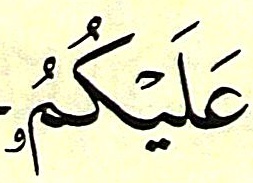 عَلَيْكُمُو